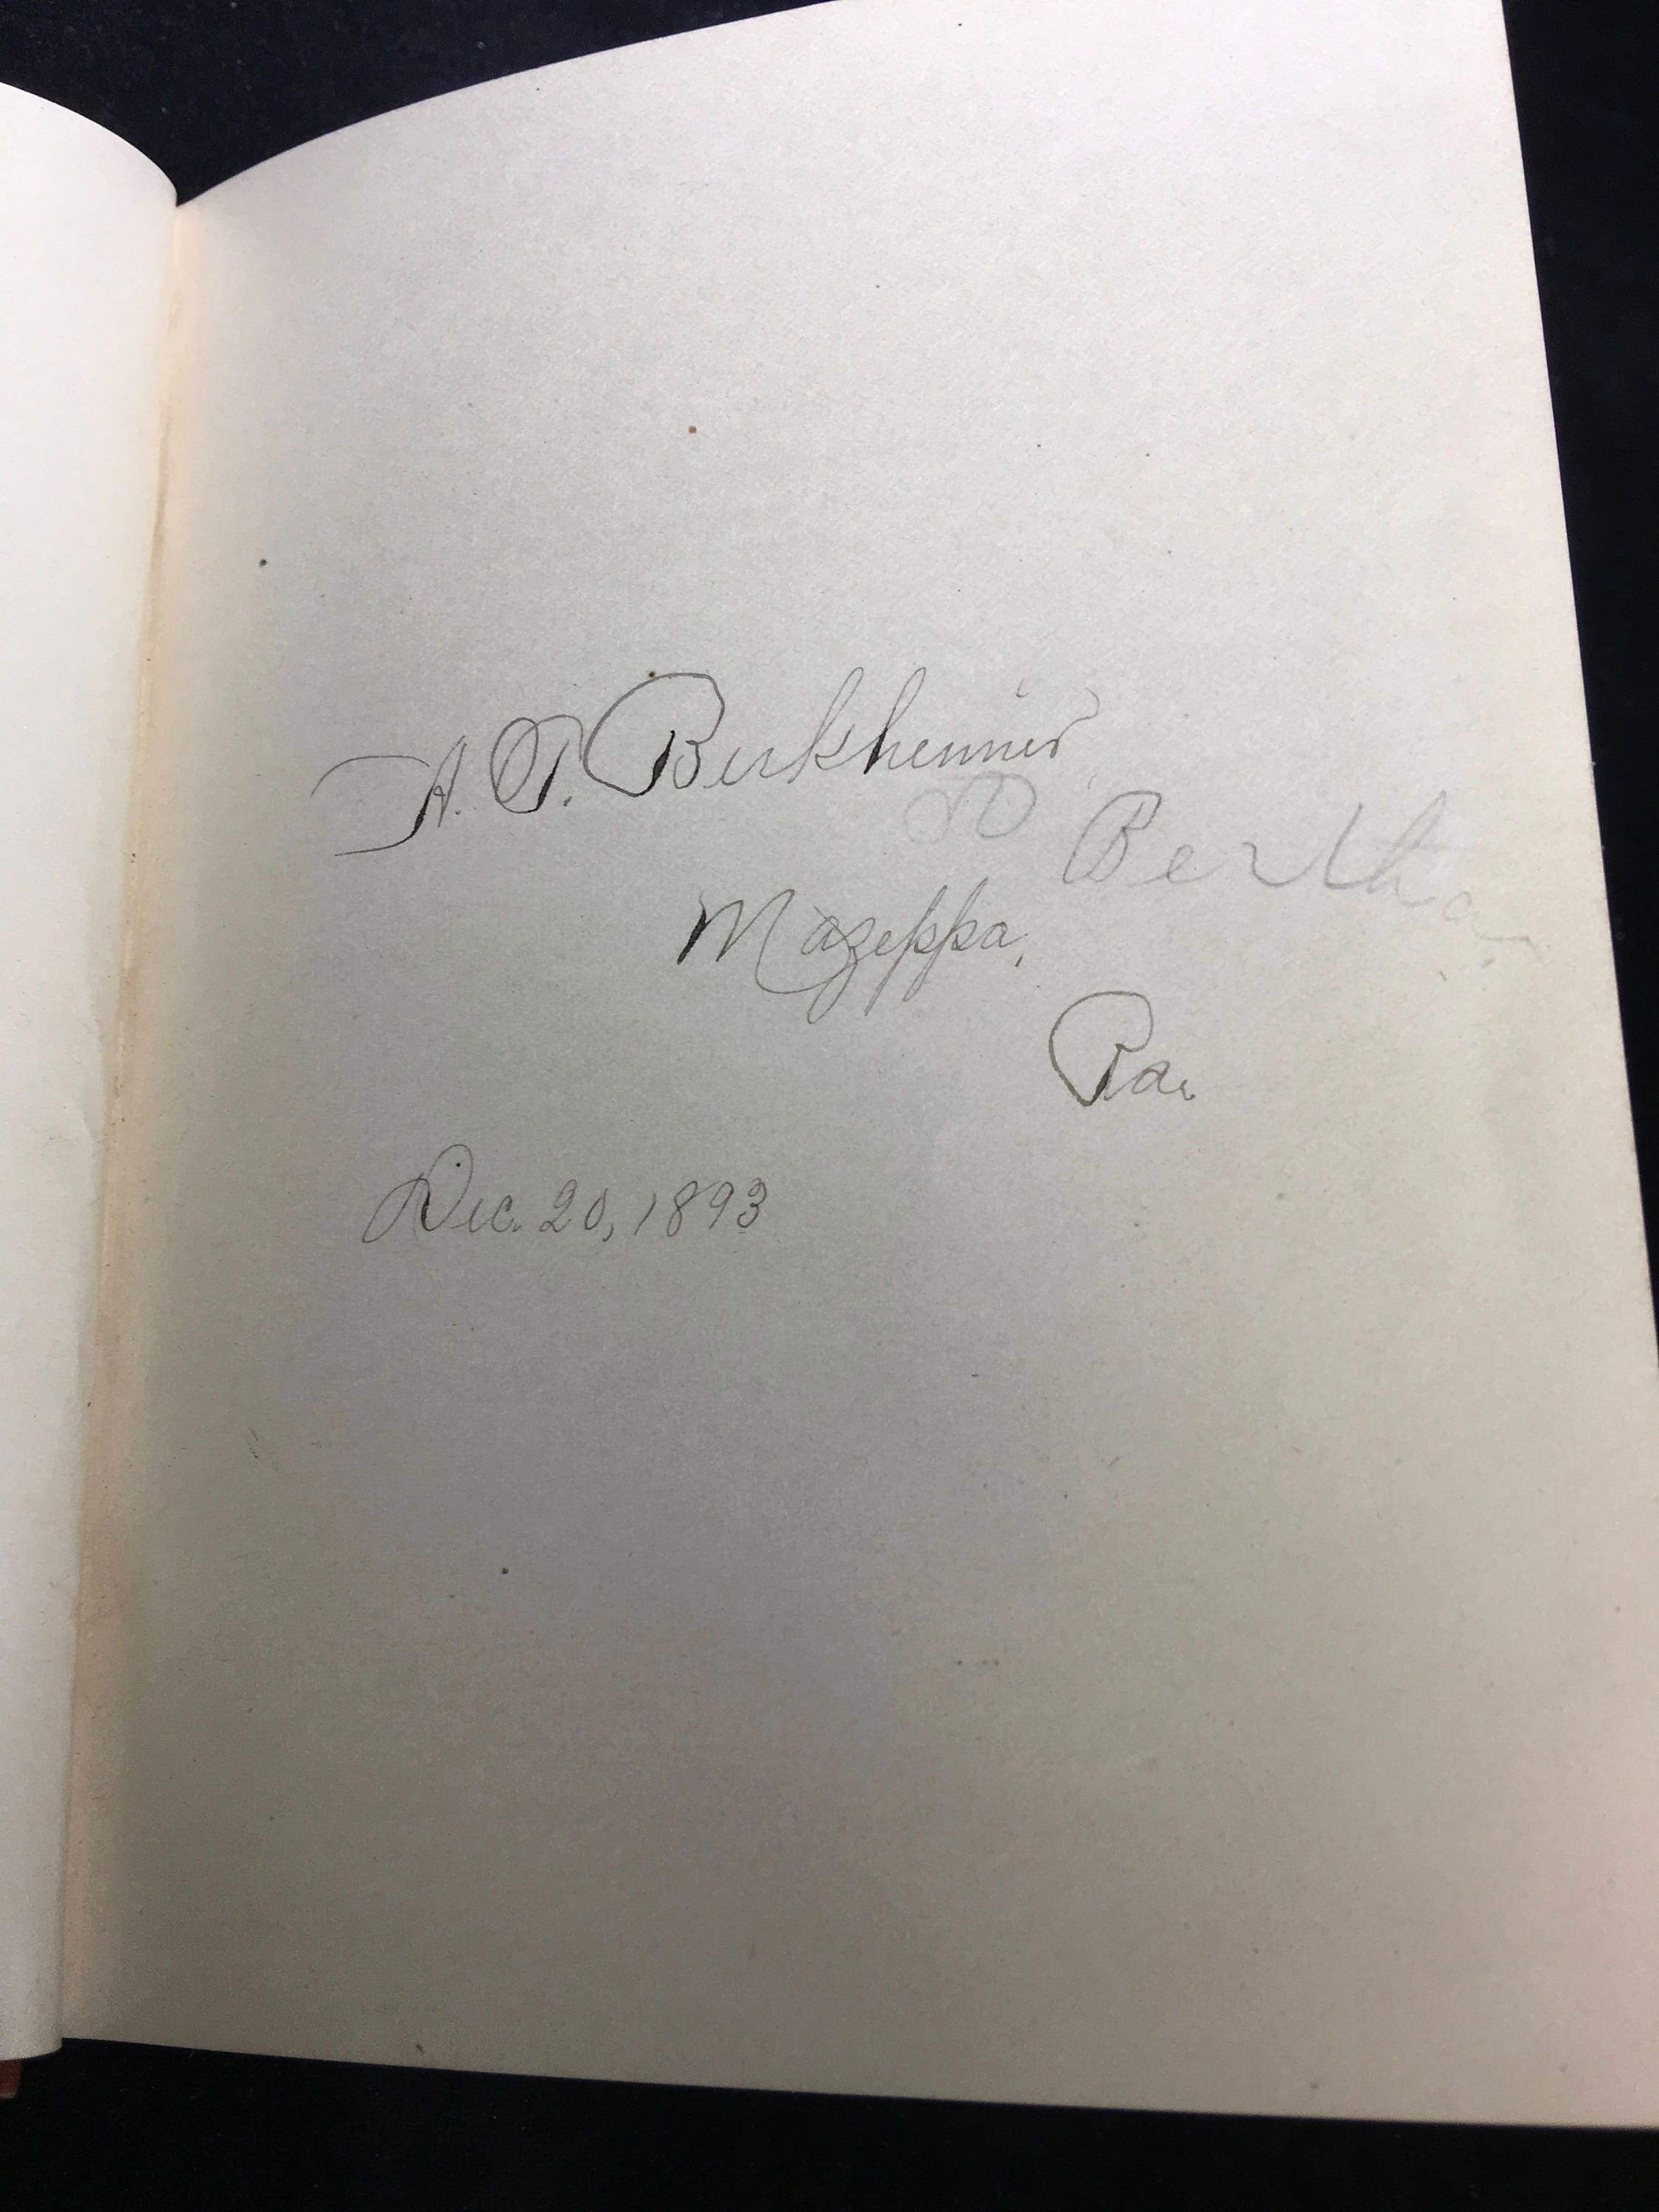 A. P. Berkheimer
Bertha
Mazeppa,
Pa.
Dec. 20, 1893